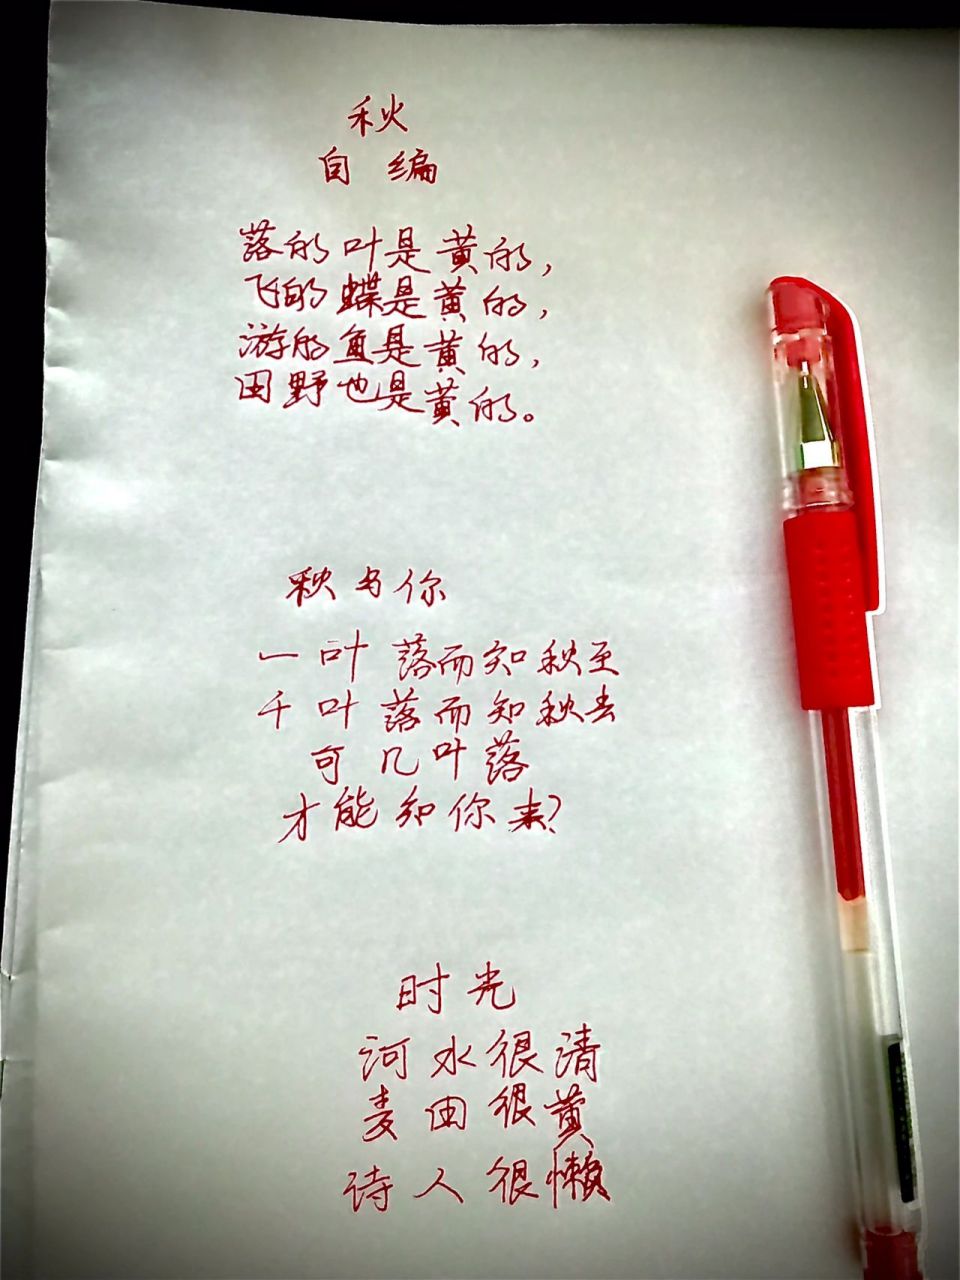 秋
自编
落的叶是黄的，
飞的蝶是黄的，
游的鱼是黄的，
田野也是黄的。
秋与你
一叶落而知秋至
千叶落而知秋去
可几叶落
才能知你来？
时光
河水很清
麦田很黄
诗人很懒